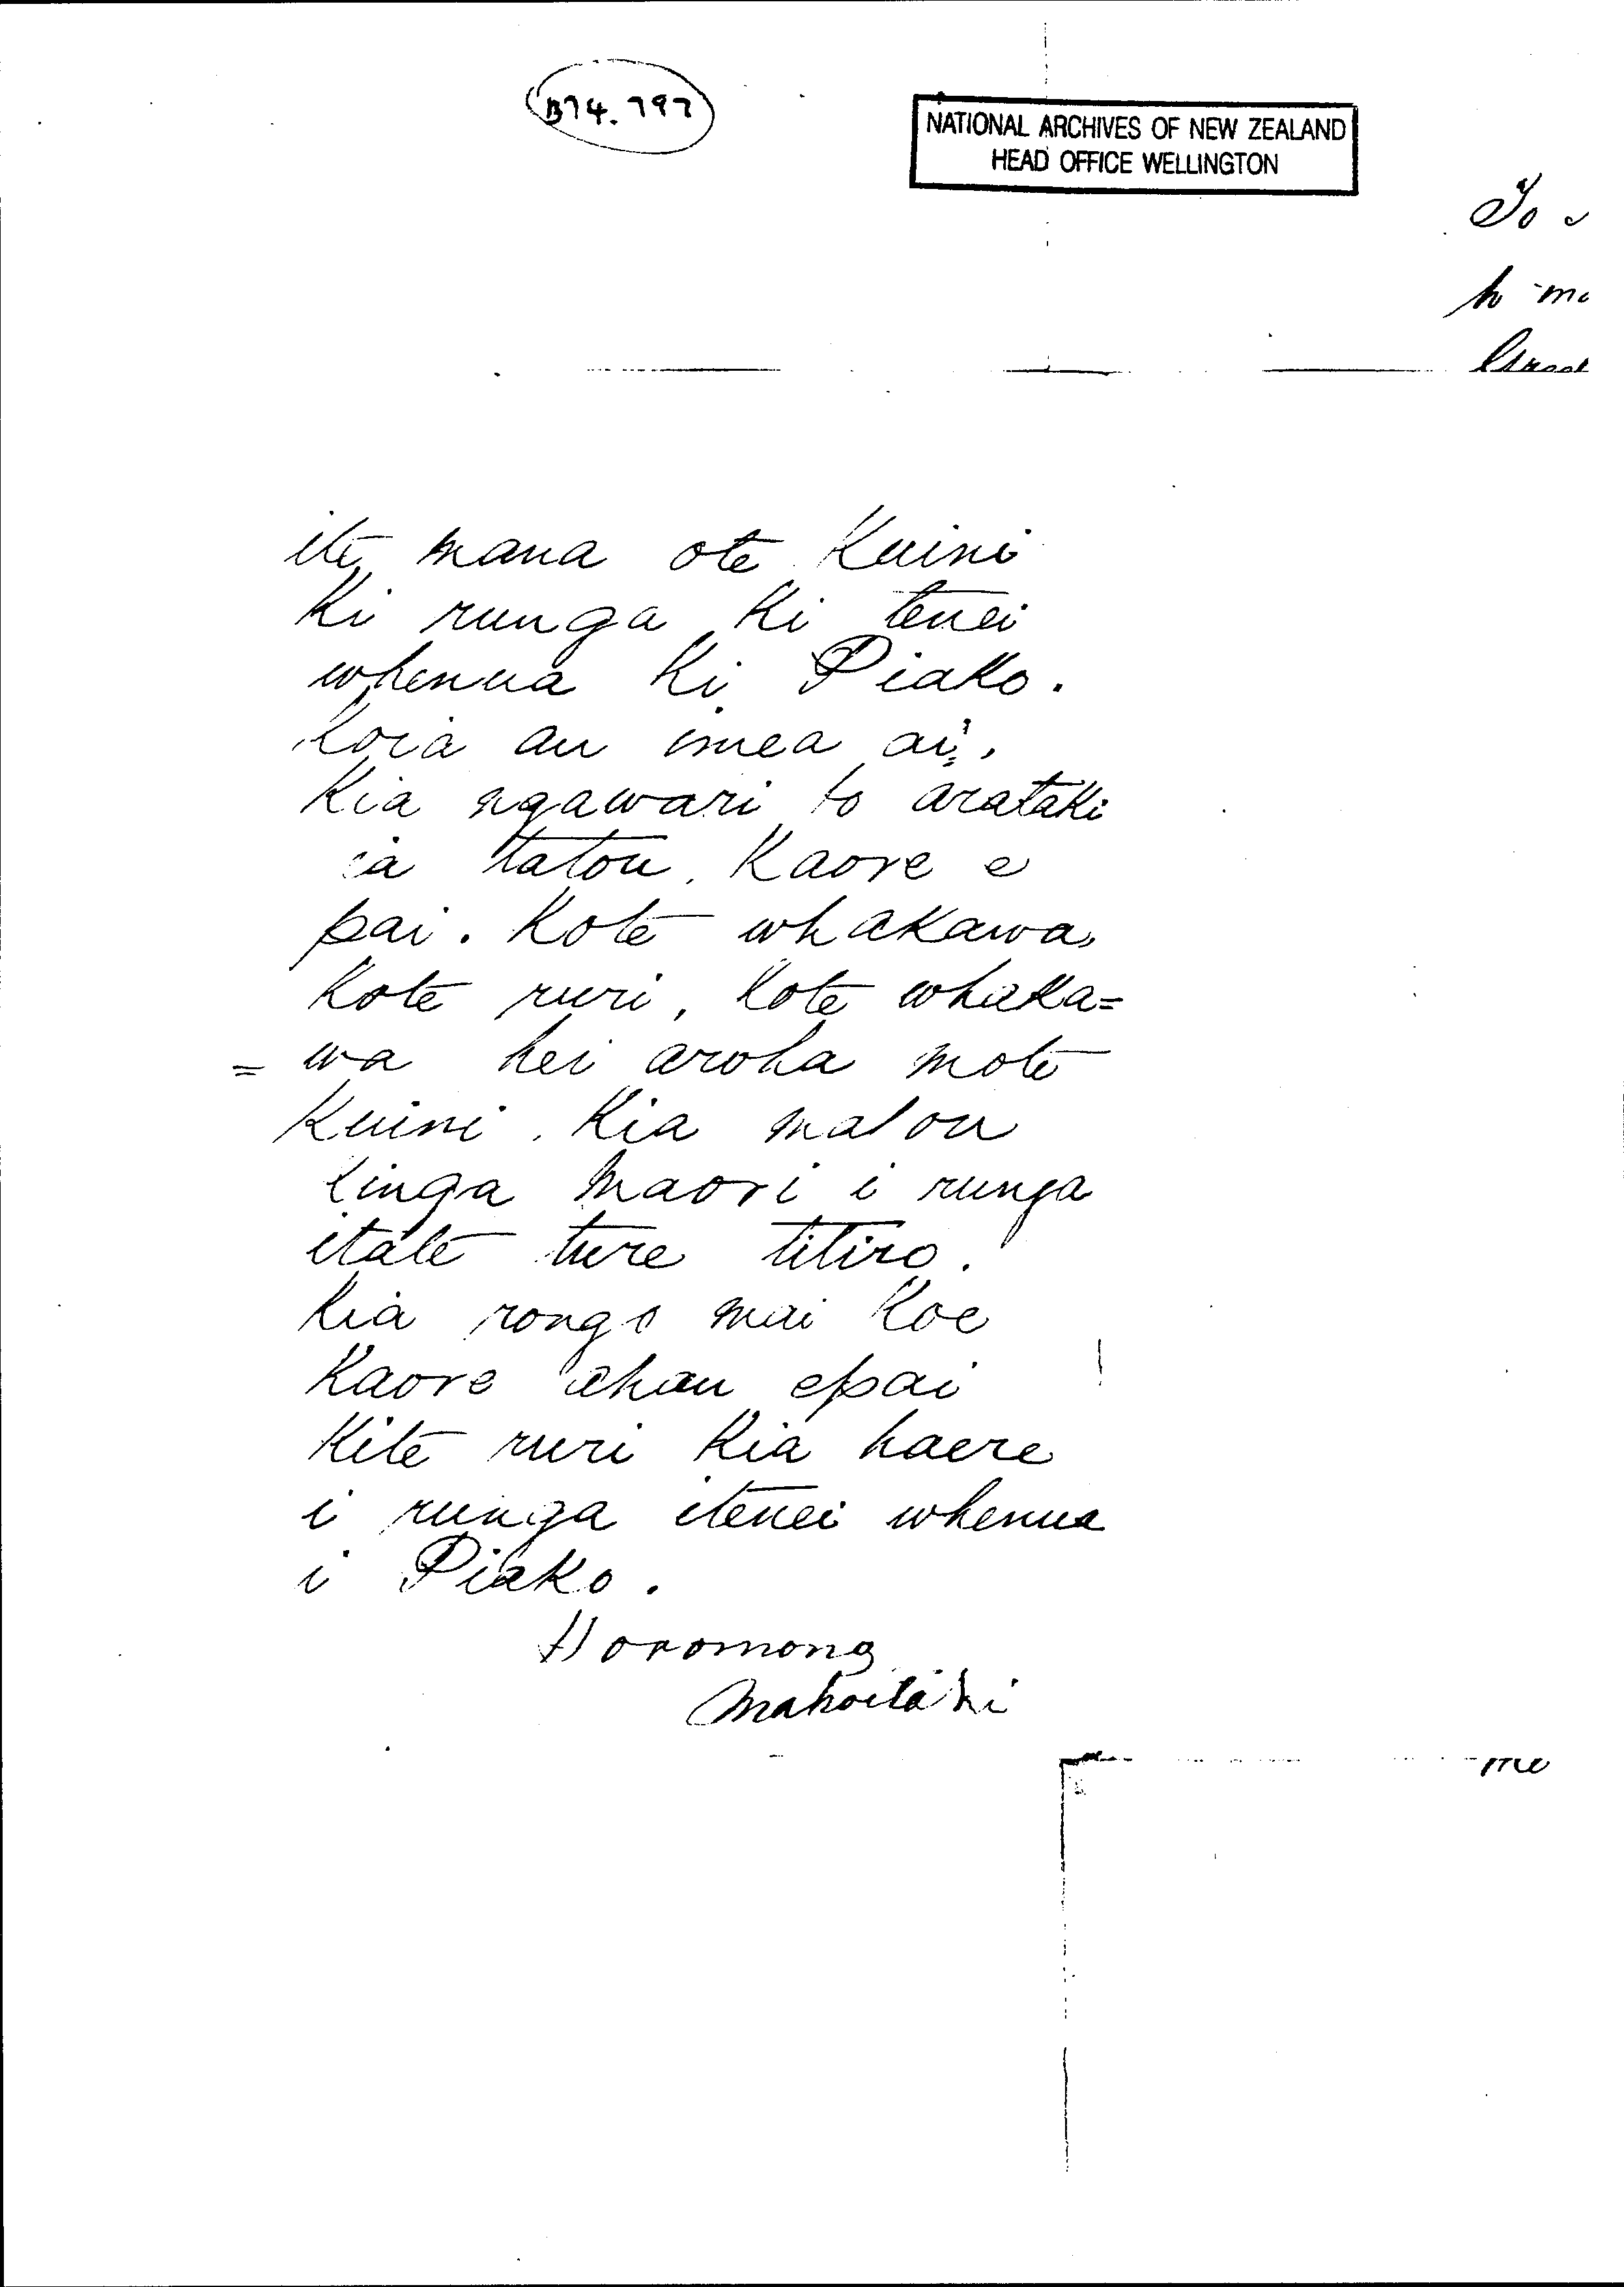 B74.797
NATIONAL ARCHIVES OF NEW ZEALAND
HEAD OFFICE WELLINGTON
To
ite mana ote Kuini
Ki runga Ki tenei
whenua Ki Piako.
Koia au imea ai,
Kia ngawari to arataki
ia tatou. Kaore e
pai. Kote whakawa,
Kote ruri, Kote whaka=
=wa hei aroha mote
Kuini. Kia matou
tinga maori i runga
itate ture titiro.
Kia rongo mai Koe
Kaore ahau epai
Kite ruri Kia haere
i runga itenei whenua
i Piako.
Horomona
me